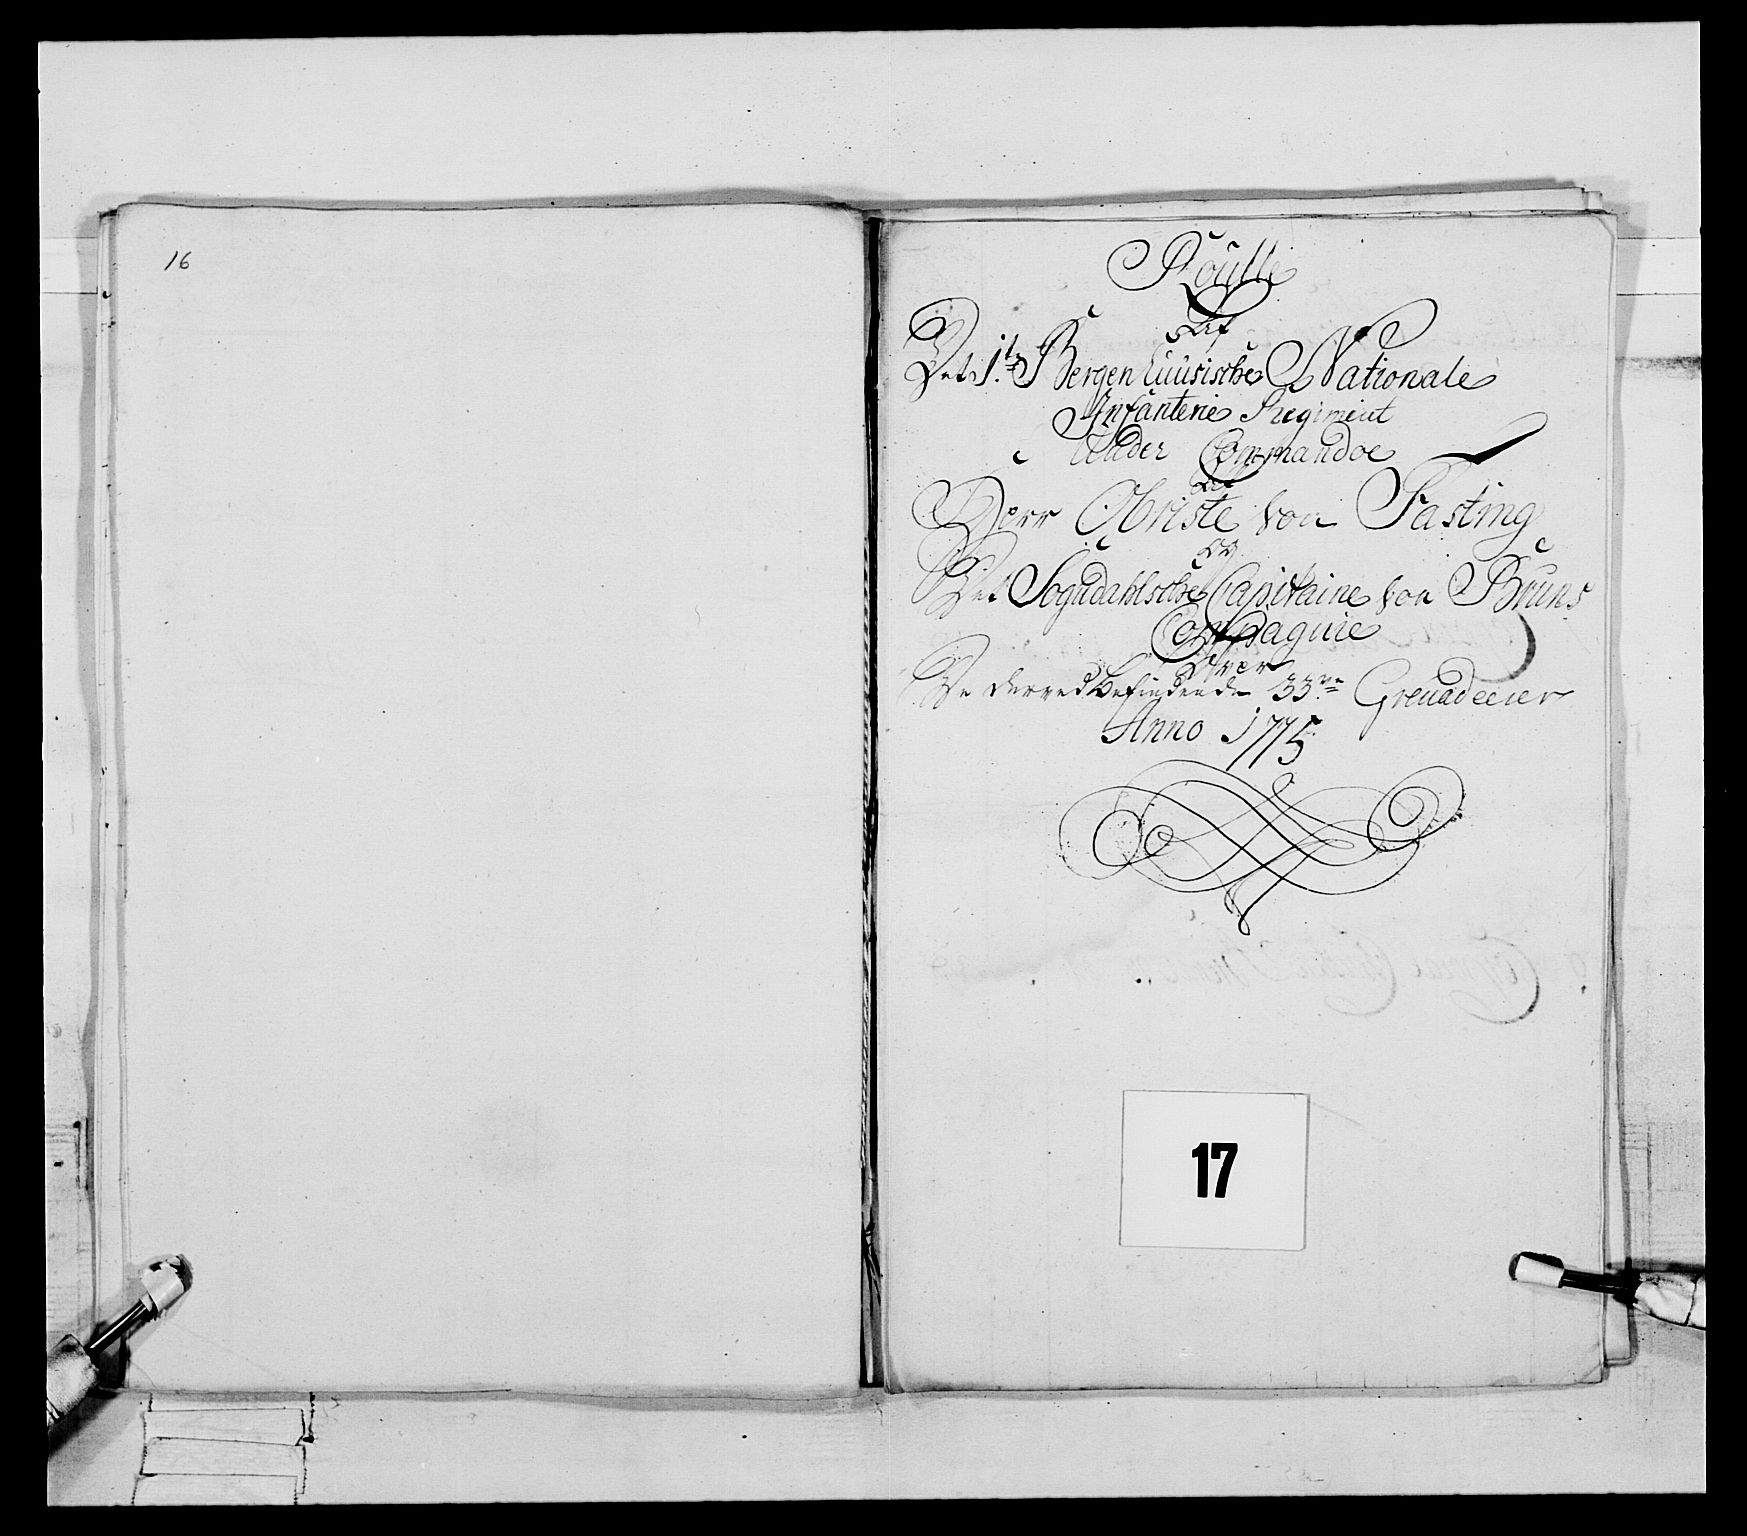 16
Roulle
Af
Det 1te Bergenhuusische Nationale
Infanterie Regiment
Under Commandoe
Af
Herr Obriste von Fasting
og
Det Sogndahlsche Capitaine von Bruns
Compagnie
Over
De derved befindende 33ve Grenadeerer
Anno 1775
17